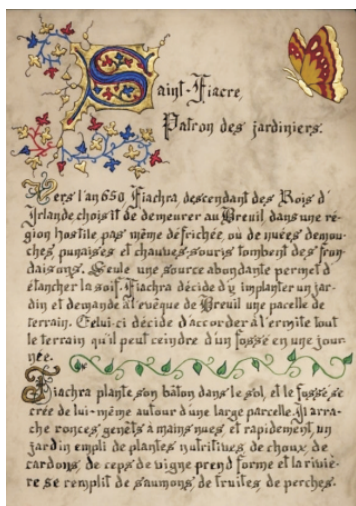 Saint-Fiacre,
Patron des jardiniers.
Vers l'an 650, Fiachra, descendant des Rois d'
Irlande choisit de demeurer au Breuil, dans une ré-
gion hostile pas même défrichée, où de nuées de mou-
ches, punaises et chauves-souris tombent des fron-
daisons. Seule une source abondante permet d'
étancher la soif. Fiachra décide d'y implanter un jar-
din et demande à l'évêque de Breuil une pacelle de
terrain. Celui-ci décide d'accorder à l'ermite tout
le terrain qu'il peut ceindre d'un fossé en une jour-
née.
Fiachra plante son bâton dans le sol, et le fossé se
crée de lui-même autour d'une large parcelle. Il arra-
che ronces, genêts à mains nues, et rapidement, un
jardin empli de plantes nutritives, de choux, de
cardons, de ceps de vigne prend forme et la riviè-
re se remplit de saumons, de truites, de perches.